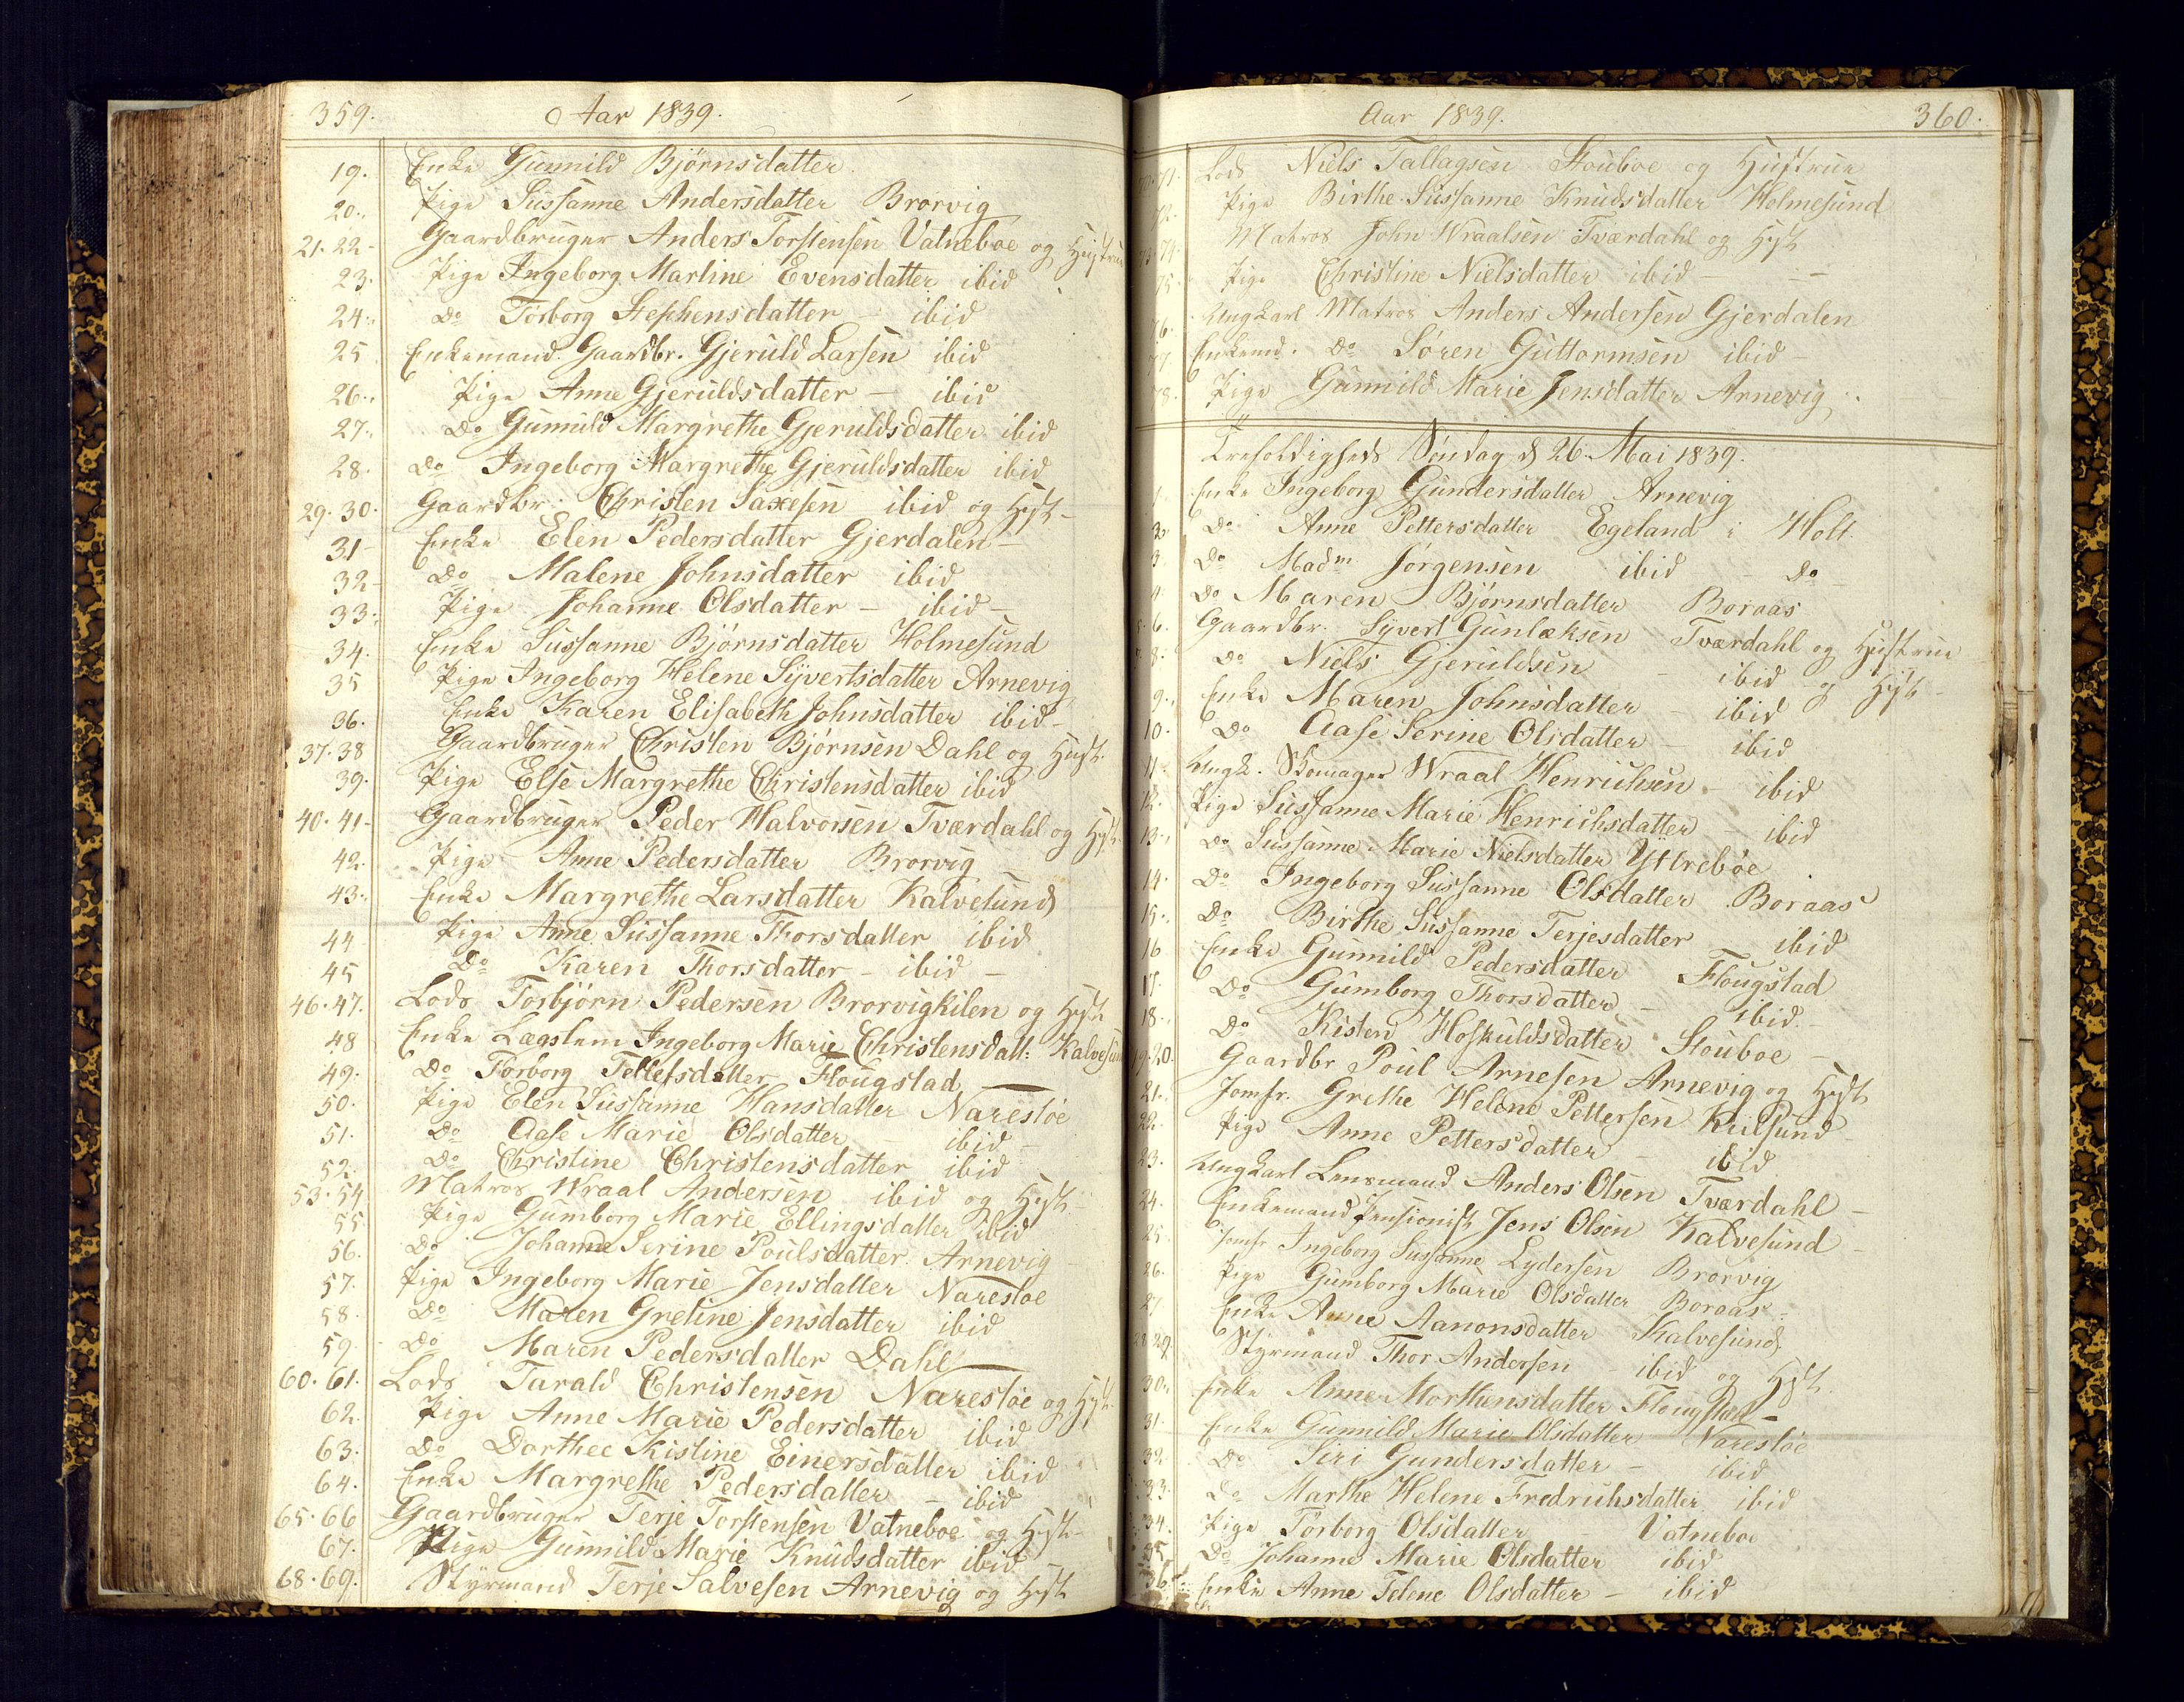 359.
Aar 1839.
19. Enke Gunnild Bjørnsdatter
20. Pige Sussanne Andersdatter Brorvig
21. 22 - Gaardbruger Anders Torstensen Vatneboe og Hustrue
23. Pige Ingeborg Martine Evensdatter ibid
24. Do Torborg Stephensdatter - ibid
25 Enkemand. Gaardbr. Gjeruld Larsen ibid
26. Pige Anne Gjeruldsdatter - ibid
27. Do Gunnild Margrethe Gjeruldsdatter ibid
28. Do Ingeborg Margrethe Gjeruldsdatter ibid
29. 30. Gaardbr. Christen Saxesen ibid og Hust -
31 - Enke Elen Pedersdatter Gjerdalen -
32 - Do Malene Johnsdatter ibid
33. Pige Johanne Olsdatter - ibid -
34. Enke Sussanne Bjørnsdatter Holmesund
35 Pige Ingeborg Helene Syvertsdatter Arnevig
36. Enke Karen Elisabeth Johnsdatter ibid -
37. 38 Gaardbruger Christen Bjørnsen Dahl og Hust.
39. Pige Else Margrethe Christensdatter ibid
40. 41 - Gaardbruger Peder Halvorsen Tværdahl og Hust
42. Pige Anne Pedersdatter Brorvig
43. Enke Margrethe Larsdatter Kalvesund
44 Pige Anne Sussanne Thorsdatter ibid
45 Do Karen Thorsdatter - ibid -
46. 47. Lods Torbjørn Pedersen Brorvigkilen og Hust
48 Enke Lægslem Ingeborg Marie Christensdatt: Kalvesun
49. Do Torborg Tellefsdatter Flougstad
50. Pige Elen Sussanne Hansdatter Narestøe
51. Do Aase Marie Olsdatter - ibid -
52. Do Christine Christensdatter ibid
53. 54 Matros Wraal Andersen ibid og Hust -
55 Pige Gumborg Marie Ellingsdatter ibid
56. Do Johanne Serine Poulsdatter Arnevig
57. Pige Ingeborg Marie Jensdatter Narestøe
58. Do Maren Gretine Jensdatter ibid
59. Do Maren Pedersdatter Dahl
60. 61. Lods Tarald Christensen Narestøe og Hust
62. Pige Anne Marie Pedersdatter ibid
63. Do Dorthee Kistine Einersdatter ibid
64. Enke Margrethe Pedersdatter - ibid
65. 66 Gaardbruger Terje Torstensen Vatneboe og Hust -
67. Pige Gunnild Marie Knudsdatter ibid
68. 69. Styrmand Terje Salvesen Arnevig og Hust
Aar 1839.
360.
71. Lods Niels Tallagsen Stouboe og Hustrue
72. Pige Birthe Sussanne Knudsdatter Holmesund
74. Matros John Wraalsen Tværdahl og Hust
75. Pige Christine Nielsdatter ibid -
76. Ungkarl Matros Anders Andersen Gjerdalen
77. Enkemd. Do Søren Guttormsen ibid -
78. Pige Gunnild Marie Jensdatter Arnevig
Trefoldigheds Søndag d 26. Mai 1839.
1. Enke Ingeborg Gundersdatter Arnevig
2. Do Anne Pettersdatter Egeland i Holt.
3. Do Madm Jørgensen ibid - Do -
4. Do Maren Bjørnsdatter Boraas
6. Gaardbr. Syvert Gunlæksen Tværdahl og Hustrue
8. Do Niels Gjeruldsen - ibid og Hust -
9. Enke Maren Johnsdatter - ibid
10. Do Aase Serine Olsdatter - ibid
11. Ungk. Skomager Wraal Henrichsen - ibid
12. Pige Sussanne Marie Henrichsdatter - ibid
13. Do Sussanne Marie Nielsdatter Yttrebøe
14. Do Ingeborg Sussanne Olsdatter Boraas
15. Do Birthe Sussanne Terjesdatter ibid
16 Enke Gunnild Pedersdatter Flougstad
17. Do Gumborg Thorsdatter - ibid -
18. Do Kisten Hoskuldsdatter Stouboe -
19. 20. Gaardbr Poul Arnesen Arnevig og Hust
21. Jomfr. Grethe Helene Pettersen Kulsund
22. Pige Anne Pettersdatter - ibid
23. Ungkarl Lensmand Anders Olsen Tværdahl -
24. Enkemand Pensionist Jens Olsen Kalvesund -
25. Jomfr Ingeborg Sussanne Lydersen Brorvig
26. Pige Gumborg Marie Olsdatter Boraas -
27 Enke Anne Aanonsdatter Kalvesund
28 29 Styrmand Thor Andersen - ibid og Hust.
30. Enke Anne Morthensdatter Flougstad -
31. Enke Gunnild Marie Olsdatter Narestøe
32. Do Siri Gundersdatter - ibid
33. Do Marthe Helene Fredrichsdatter ibid
34. Pige Torborg Olsdatter - Vatneboe
35. Do Johanne Marie Olsdatter ibid
36. Enke Anne Telene Olsdatter - ibid